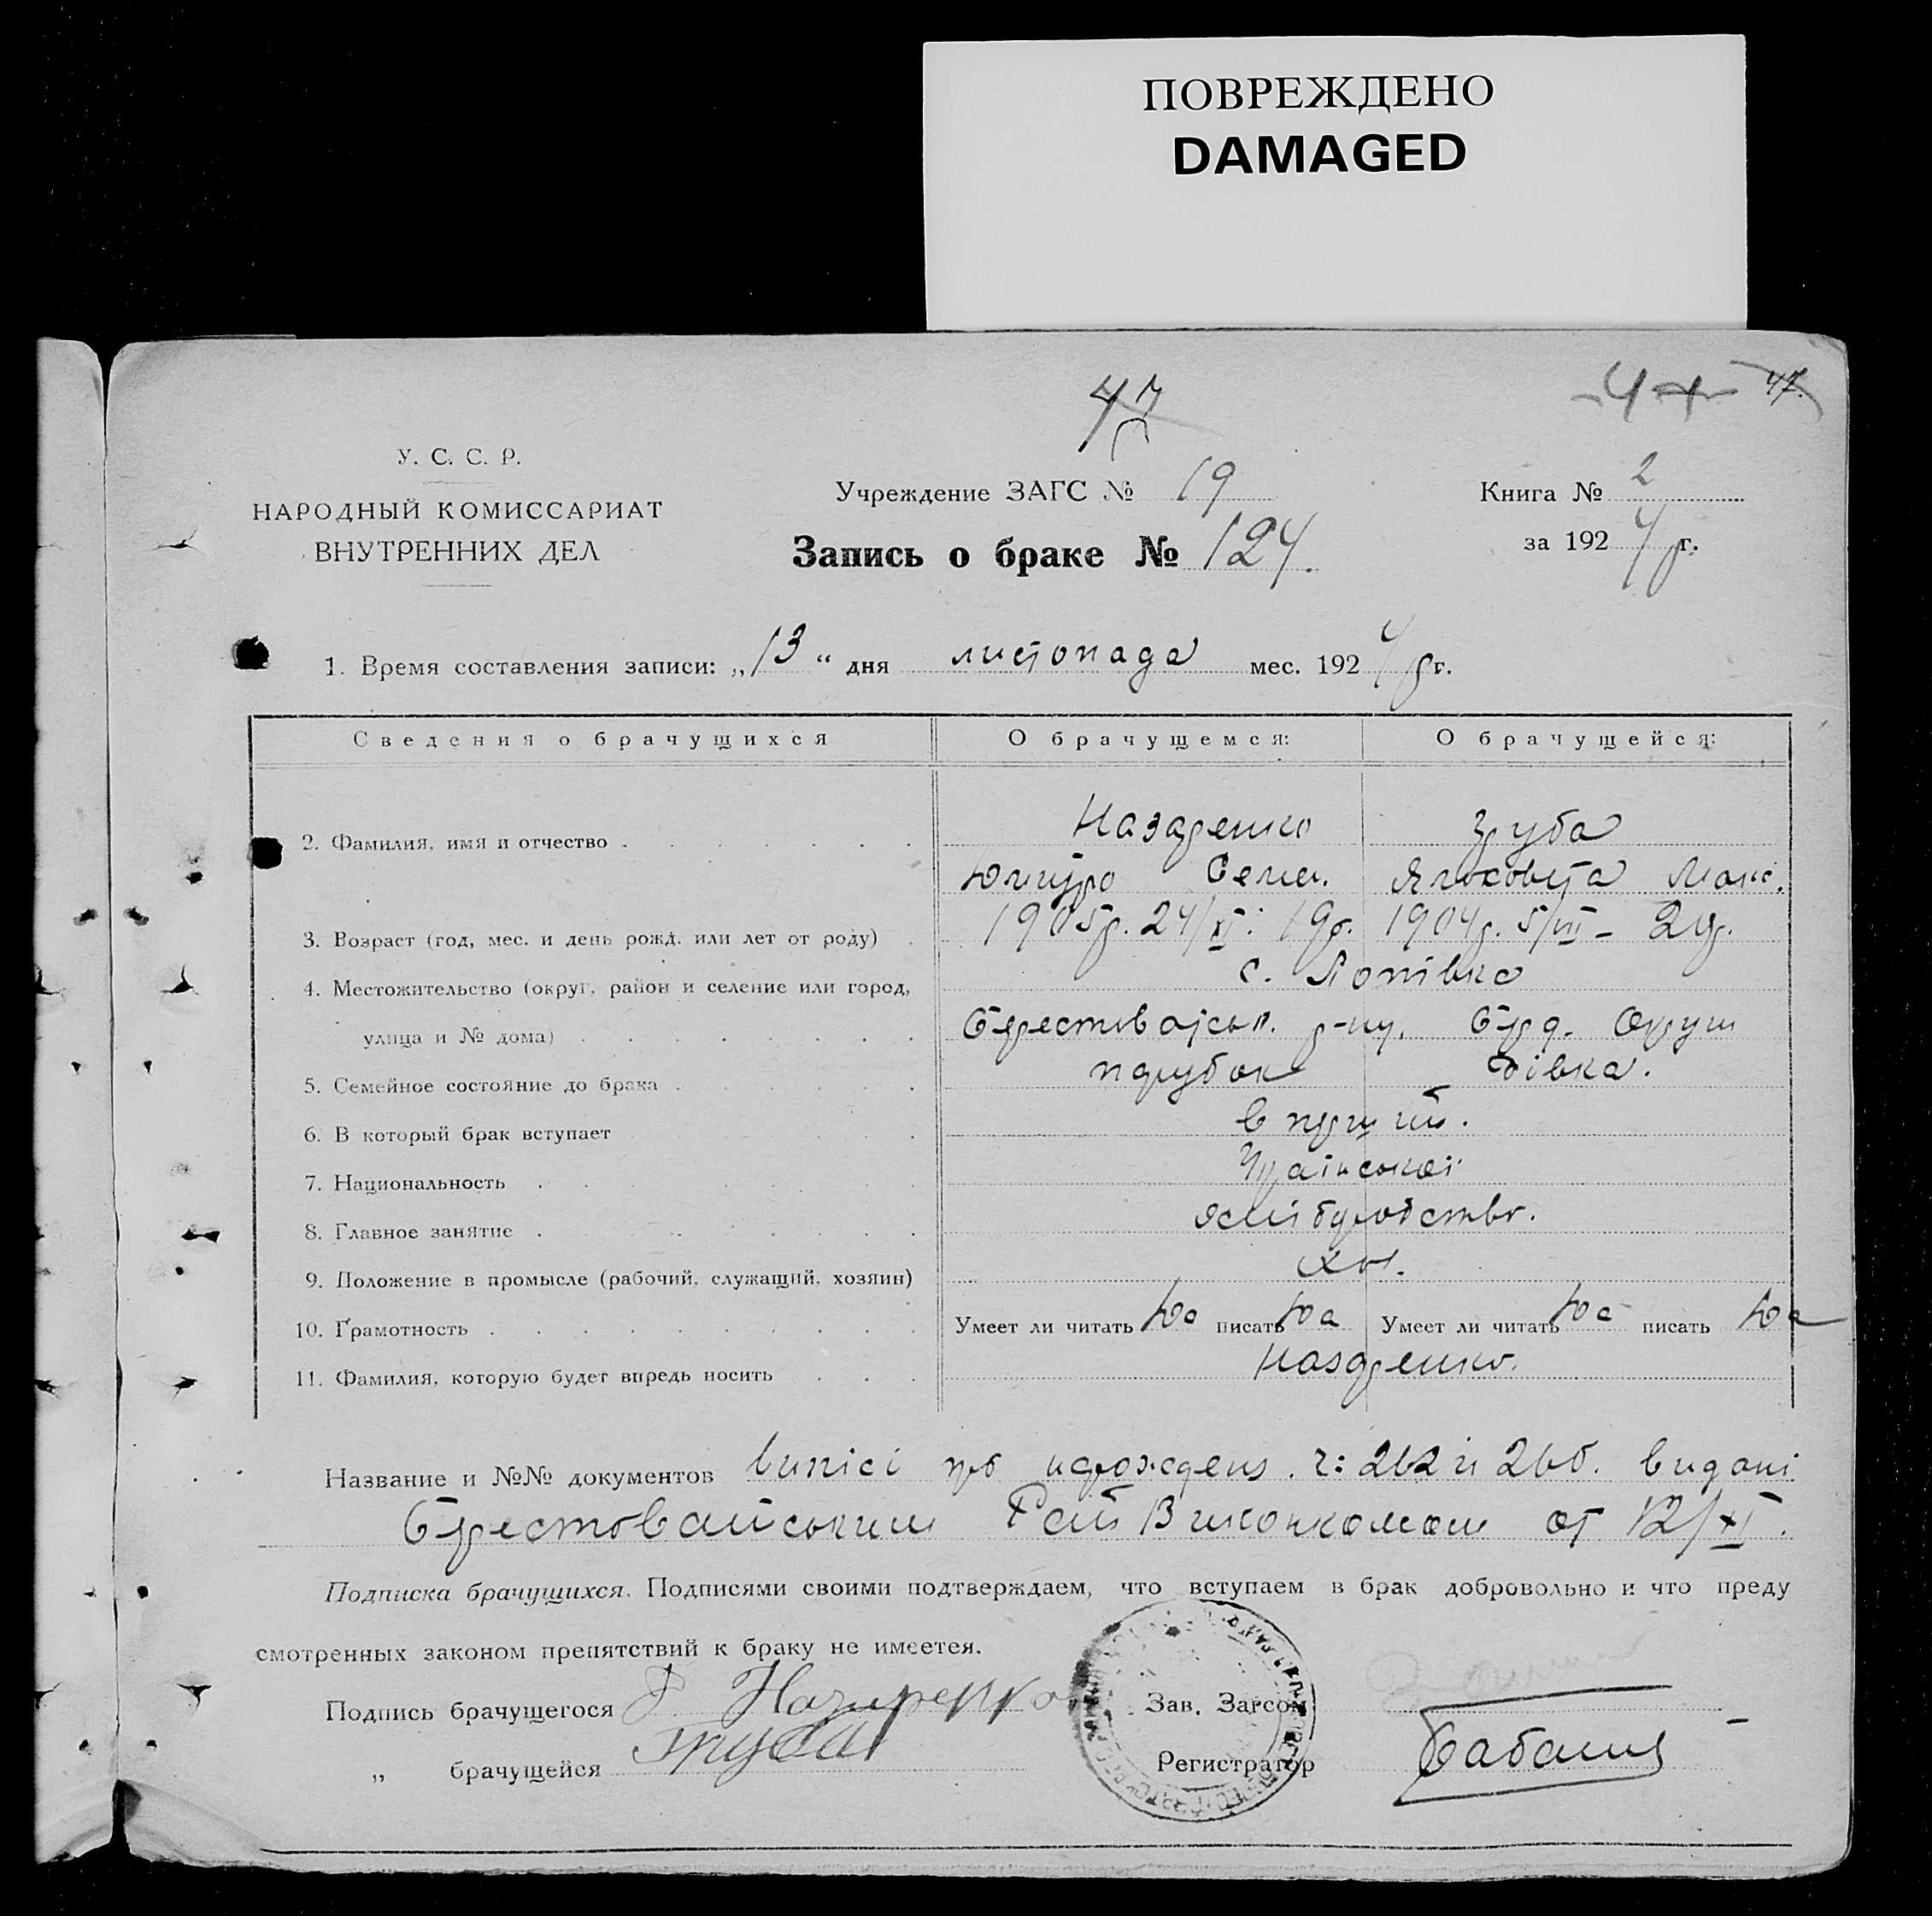 ПОВРЕЖДЕНО
DAMAGED
47
47 47.
У. С. С. Р.
НАРОДНЫЙ КОМИССАРИАТ
ВНУТРЕННИХ ДЕЛ
Учреждение ЗАГС № 19
Запись о браке № 124.
Книга № 2
за 1924 р г.
1. Время составления записи: „13“ дня листопада мес. 1924 р г.
Сведения о брачущихся О брачущемся: О брачущейся:
2. Фамилия, имя и отчество Назаренко Груба
Семен. Макс.
3. Возраст (год, мес. и день рожд. или лет от роду) 1905р. 24/XI. 19р. 1904р. 5/VII - 20р.
4. Местожительство (округ, район и селение или город, с. Попівка
улица и № дома) Берестовайськ. р-ну, Берд. Округи
5. Семейное состояние до брака парубок дівка.
6. В который брак вступает в перший.
7. Национальность Української
8. Главное занятие хліборобство.
9. Положение в промысле (рабочий, служащий, хозяин) хоз.
10. Грамотность Умеет ли читать да писать да Умеет ли читать да писать да
11. Фамилия, которую будет впредь носить Назаренко.
Название и №№ документов виписі про народжен. ч: 262 и 260. видані
Берестовайським Рай Виконкомом от 12/XI.
Подписка брачущихся. Подписями своими подтверждаем, что вступаем в брак добровольно и что преду
смотренных законом препятствий к браку не имеетея.
Подпись брачущегося Назаренко Зав. Загсом
„ брачущейся Груба Регистратор Бабаниц